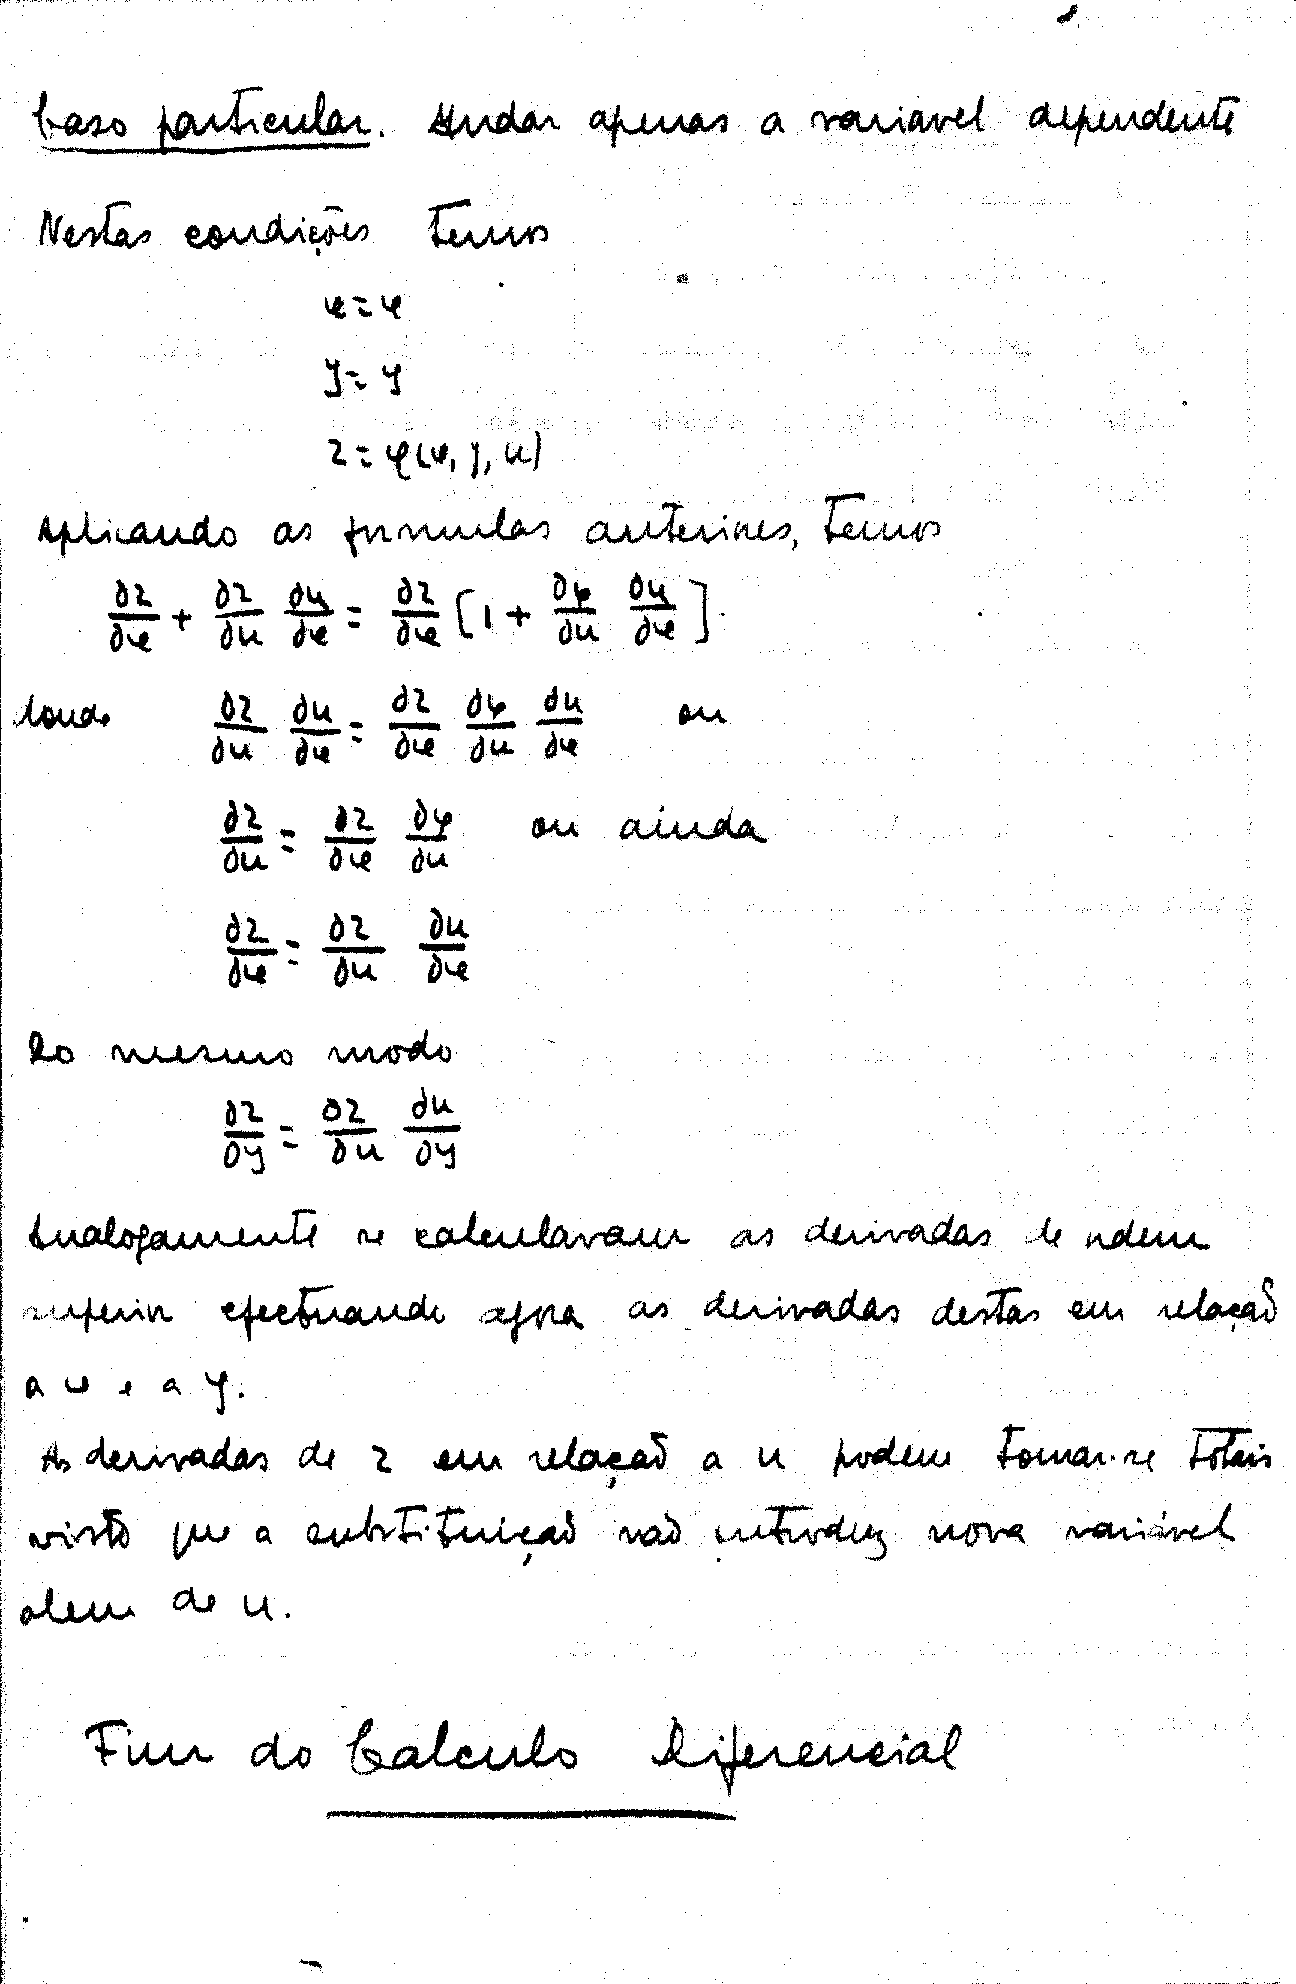 Caso particular. Mudar apenas a variavel dependente
Nestas condições temos
x = x
y = y
z = φ(x, y, u)
Aplicando as formulas anteriores, temos
∂z/∂x + ∂z/∂u ∂u/∂x = ∂z/∂x [1 + ∂φ/∂u ∂u/∂x]
donde ∂z/∂u ∂u/∂x = ∂z/∂x ∂φ/∂u ∂u/∂x ou
∂z/∂u = ∂z/∂x ∂φ/∂u ou ainda
∂z/∂x = ∂z/∂u ∂u/∂x
Do mesmo modo
∂z/∂y = ∂z/∂u ∂u/∂y
Analogamente se calculavam as derivadas de ordem
superior efectuando agora as derivadas destas em relação
a x e a y.
As derivadas de z em relação a u podem tomar-se totais
visto que a substituição não introduz nova variável
alem de u.
Fim do Calculo Diferencial